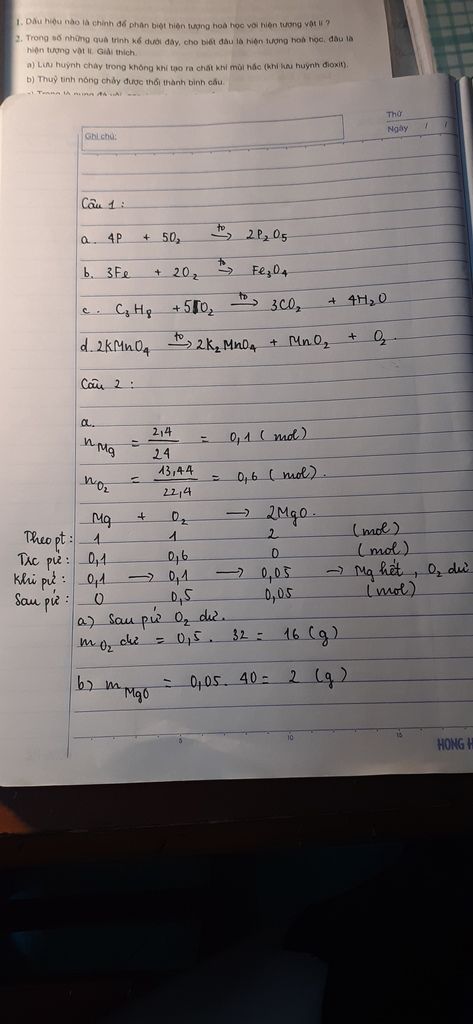 1. Dấu hiệu nào là chính để phân biệt hiện tượng hoá học với hiện tượng vật lí ?
2. Trong số những quá trình kể dưới đây, cho biết đâu là hiện tượng hoá học, đâu là
hiện tượng vật lí. Giải thích.
a) Lưu huỳnh cháy trong không khí tạo ra chất khí mùi hắc (khí lưu huỳnh đioxit).
b) Thuỷ tinh nóng chảy được thổi thành bình cầu.
Ghi chú:
Thứ
Ngày / /
Câu 1 :
a. 4P + 5O₂ →(t°) 2P₂O₅
b. 3Fe + 2O₂ →(t°) Fe₃O₄
c. C₃H₈ + 5O₂ →(t°) 3CO₂ + 4H₂O
d. 2KMnO₄ →(t°) 2K₂MnO₄ + MnO₂ + O₂.
Câu 2 :
a.
n Mg = 2,4/24 = 0,1 (mol)
n O₂ = 13,44/22,4 = 0,6 (mol).
Mg + O₂ → 2MgO.
Theo pt: 1 1 2 (mol)
Trc pứ: 0,1 0,6 0 (mol)
Khi pứ: 0,1 → 0,1 → 0,05 → Mg hết, O₂ dư
Sau pứ: 0 0,5 0,05 (mol)
a) Sau pứ O₂ dư.
m O₂ dư = 0,5 . 32 = 16 (g)
b) m MgO = 0,05 . 40 = 2 (g)
5 10 15
HONG H